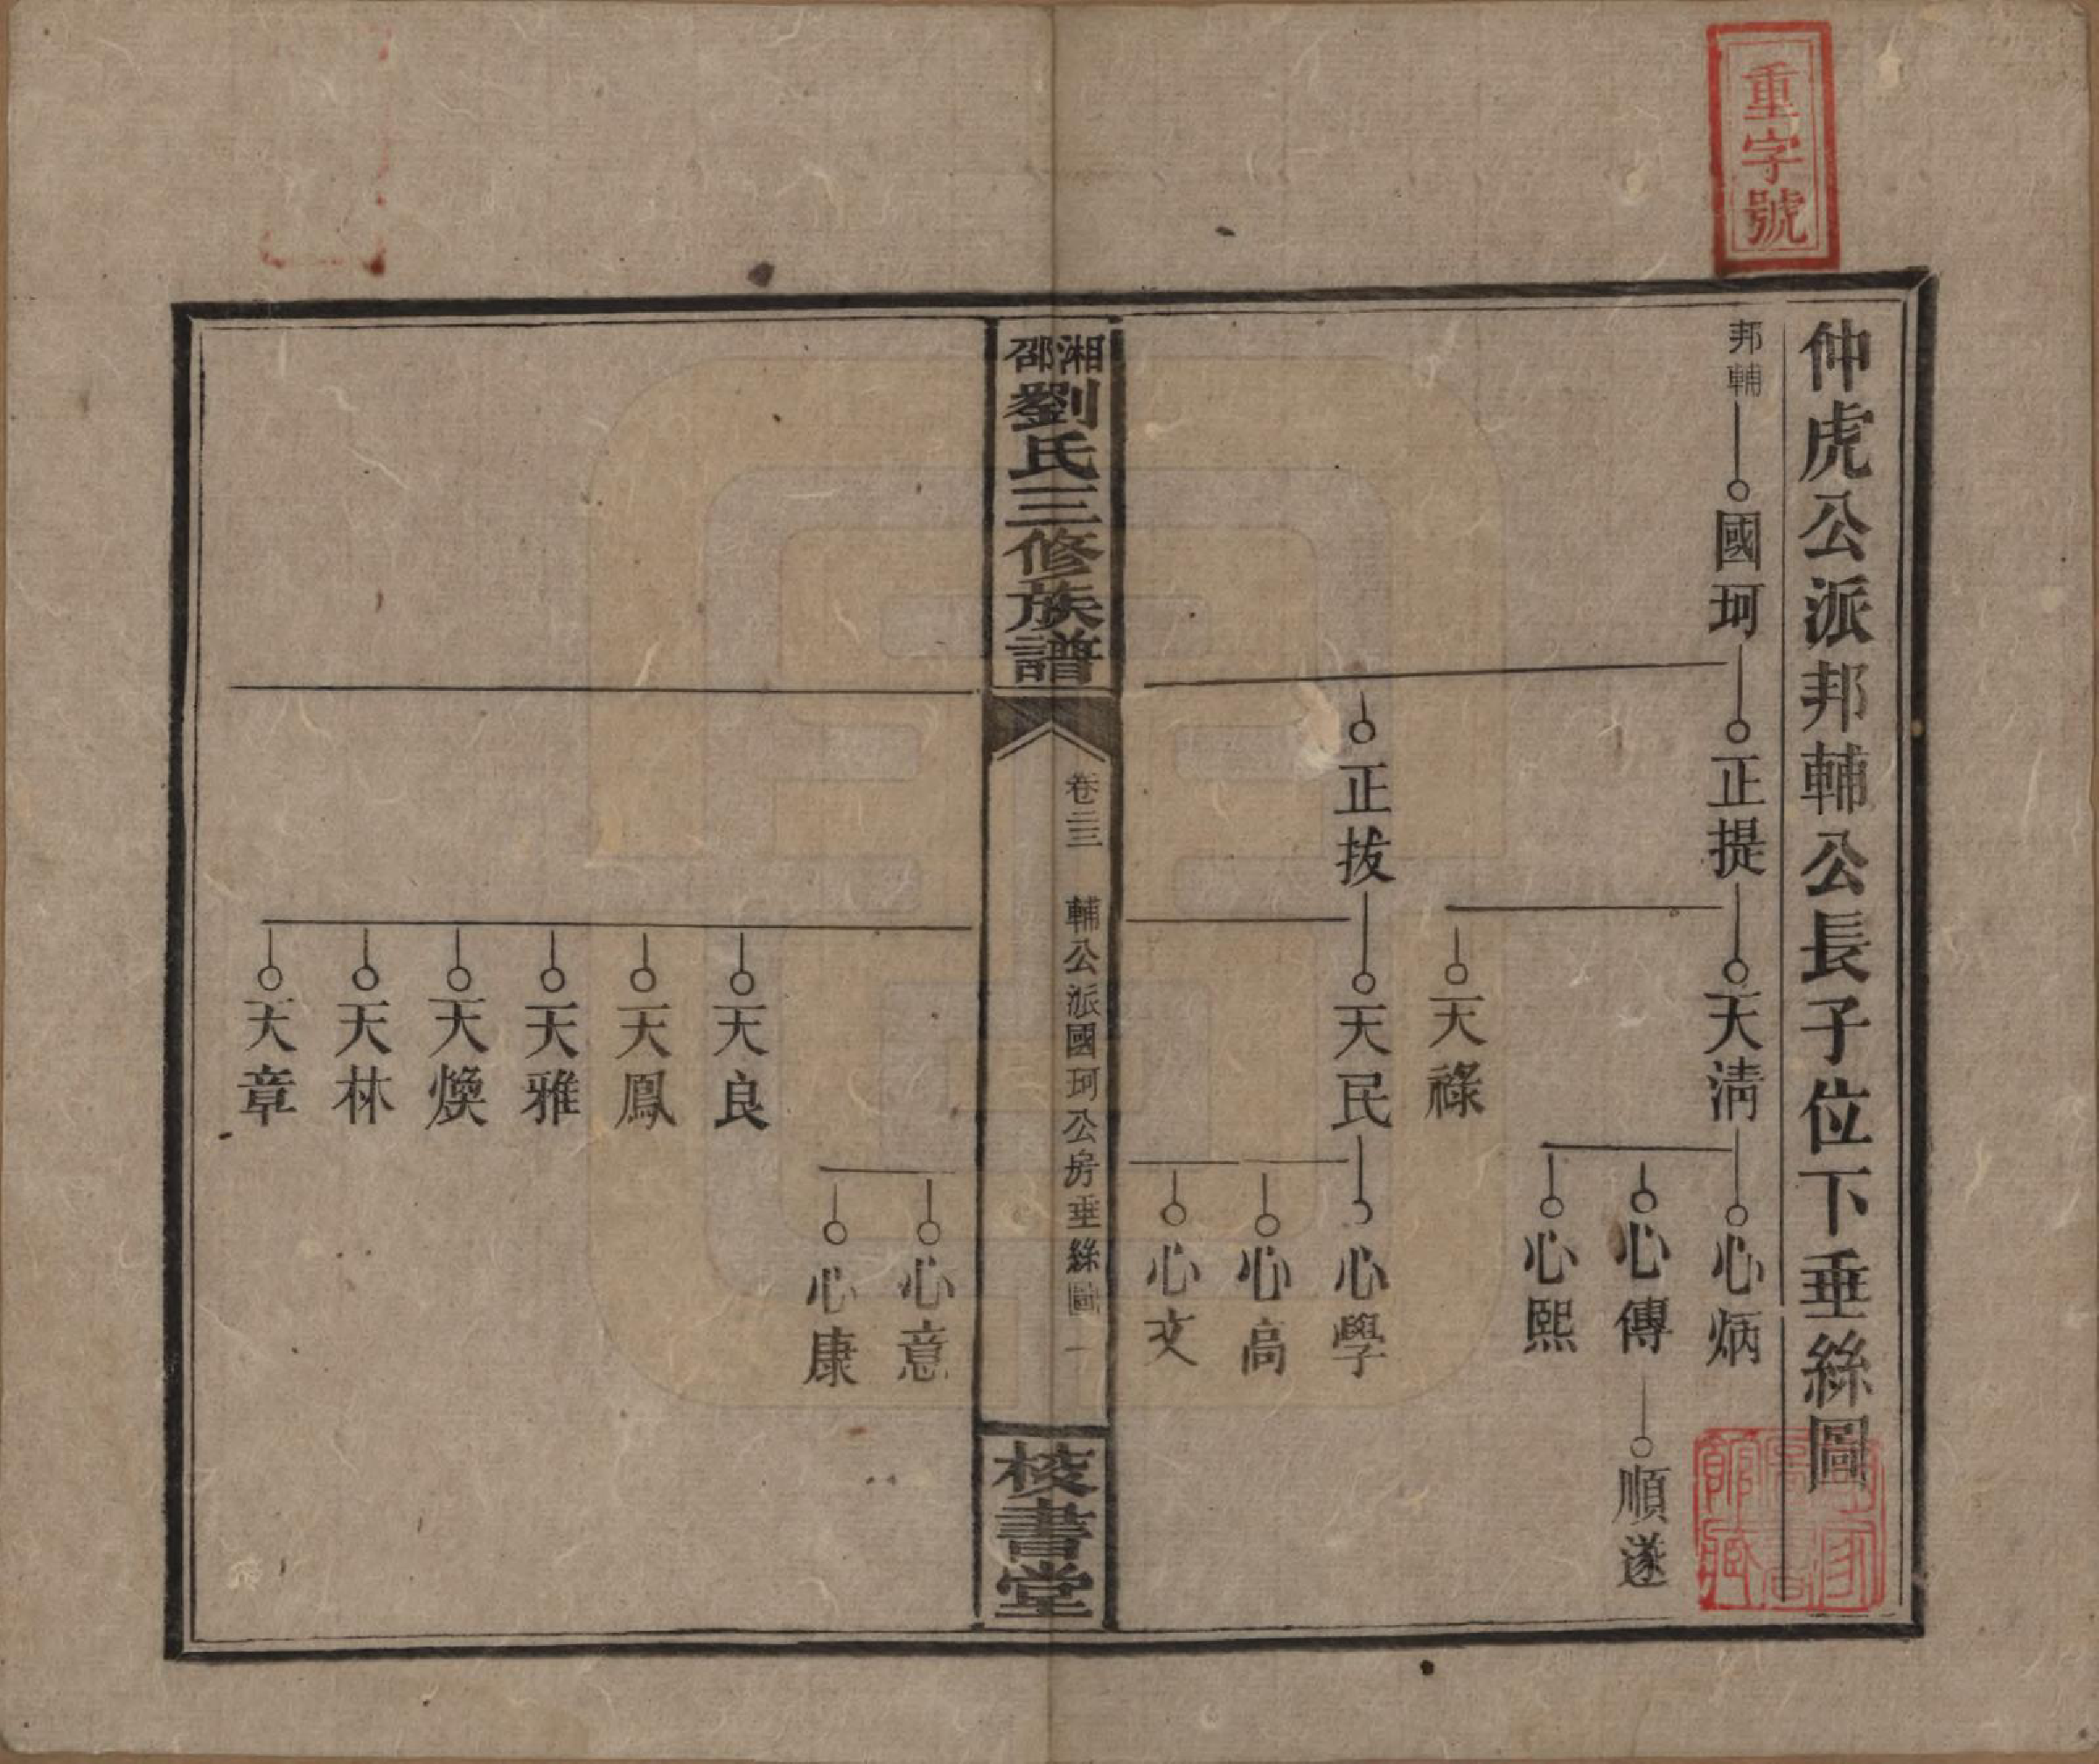 重字號
仲虎公派邦輔公長子位下垂絲圖
邦輔
國珂
正提
天淸
心炳
心傳
順遂
心熙
天祿
正拔
天民
心學
心高
心文
湘邵劉氏三修族譜
卷二三
輔公派國珂公房垂絲圖
一
校書堂
心意
心康
天良
天鳳
天雅
天煥
天林
天章